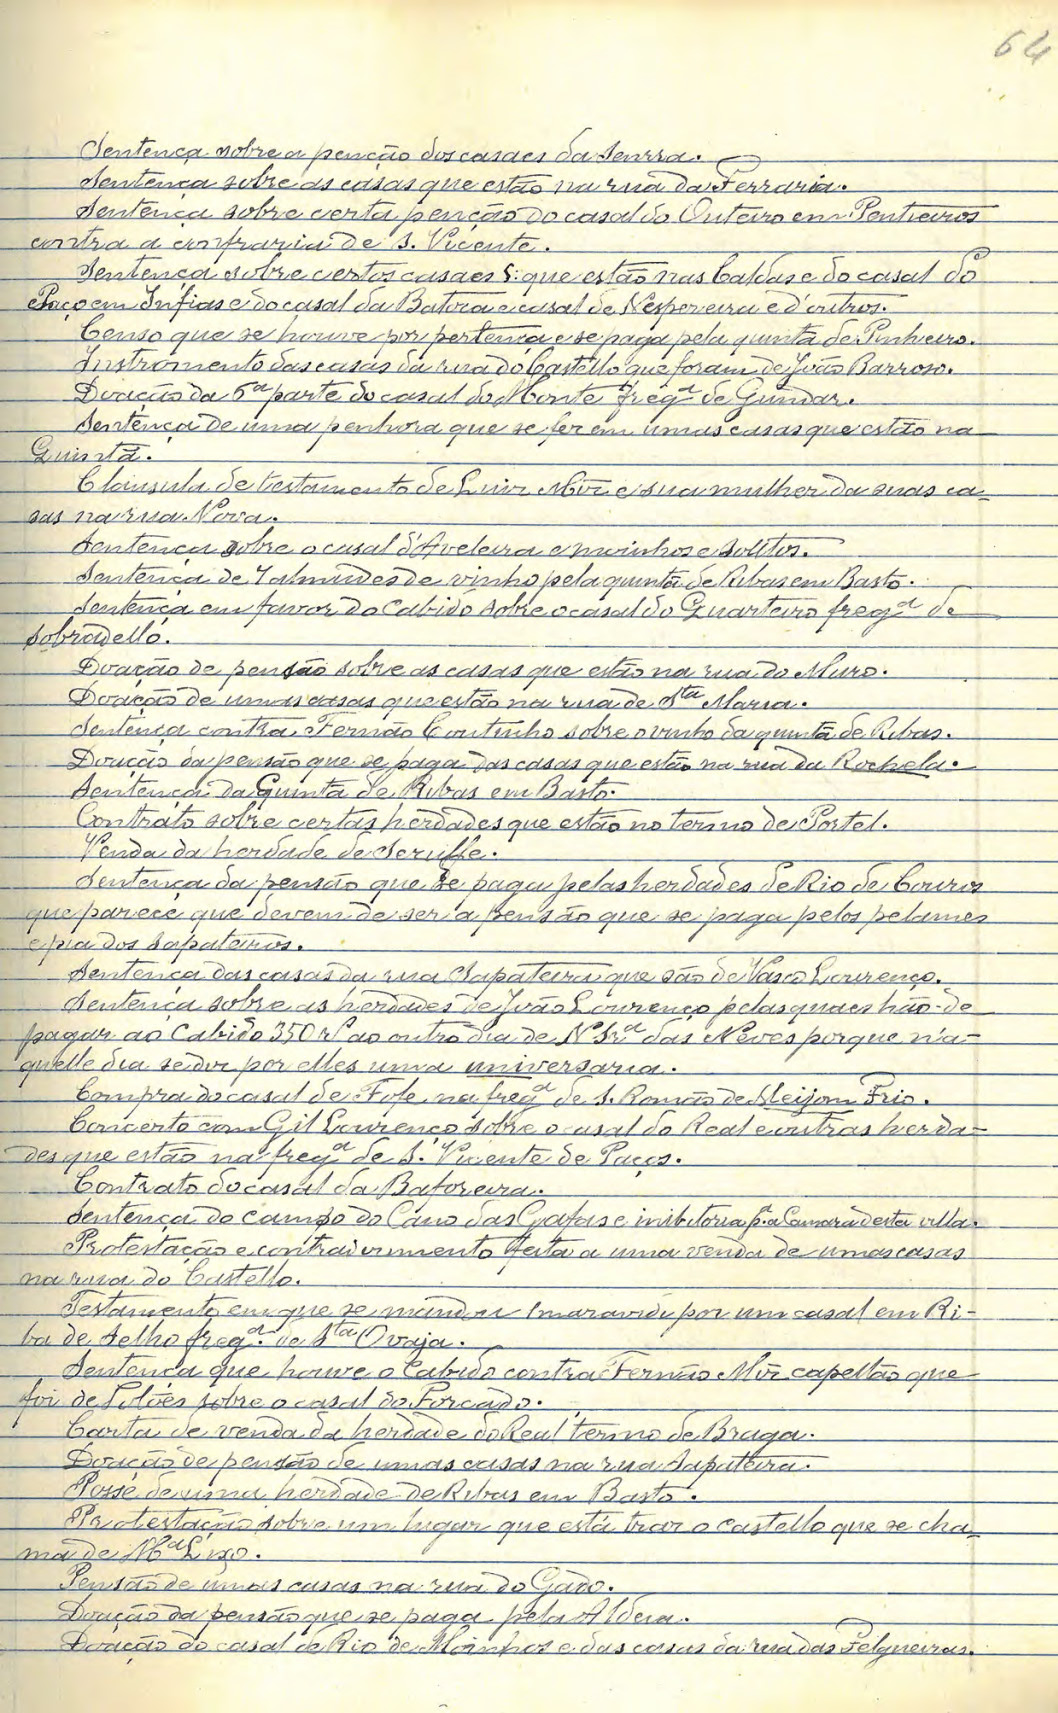 64
Sentença sobre a penção dos casaes da Senrra.
Sentença sobre as casas que estão na rua da Ferraria.
Sentença sobre certa penção do casal do Outeiro em Pentieiros
contra a confraria de S. Vicente.
Sentença sobre certos casaes S: que estão nas Caldas e do casal do
Paço em Infias e do casal da Batoca e casal de Nespereira e d'outros.
Censo que se houve por pertença e se paga pela quinta de Pinheiro.
Instromento das casas da rua do Castello que foram de João Barroso.
Doação da 6ª parte do casal do Monte fregª de Gundar.
Sentença de uma penhora que se fez em umas casas que estão na
Quintã.
Clausula de testamento de Luiz Miz e sua mulher da suas ca-
sas na rua Nova.
Sentença sobre o casal d'Aveleira e moinhos e soutos.
Sentença de 7 almudes de vinho pela quintã de Ribas em Basto.
Sentença em favor do Cabido sobre o casal do Quarteiro fregª de
Sobradello.
Doação de pensão sobre as casas que estão na rua do Muro.
Doação de umas casas que estão na rua de Sta Maria.
Sentença contra Fernão Coutinho sobre o vinho da quintã de Ribas.
Doação da pensão que se paga das casas que estão na rua da Rochela.
Sentença da Quintã de Ribas em Basto.
Contrato sobre certas herdades que estão no termo de Portel.
Venda da herdade de Seruffe.
Sentença da pensão que se paga pelas herdades de Rio de Couros
que parece que devem de ser a pensão que se paga pelos pelames
e pia dos sapateiros.
Sentença das casas da rua Sapateira que são de Vasco Lourenço.
Sentença sobre as herdades de João Lourenço pelas quaes hão-de
pagar ao Cabido 350 rs ao outro dia de N Srª das Neves porque n'a-
quelle dia se diz por elles uma universaria.
Compra do casal de Fofe na fregª de S. Romão de Meijom Frio.
Concerto com Gil Lourenço sobre o casal do Real e outras herda-
des que estão na fregª de S. Vicente de Paços.
Contrato do casal da Baforeira.
Sentença do campo do Cano das Gafas e inibitoria p.a a Camara desta villa.
Protestação e contradimento feita a uma venda de umas casas
na rua do Castello.
Testamento em que se mandou 1 maravidi por um casal em Ri-
ba de Selho fregª de Sta Ovaja.
Sentença que houve o Cabido contra Fernão Miz capellão que
foi de Polões sobre o casal do Forcado.
Carta de venda da herdade do Real termo de Braga.
Doação de pensão de umas casas na rua Sapateira.
Posse de uma herdade de Ribas em Basto.
Protestação sobre um lugar que está traz o castello que se cha-
ma de
Pensão de umas casas na rua do Gado.
Doação da pensão que se paga pela Aldeia.
Doação do casal de Rio de Moinhos e das casas da rua das Felgueiras.